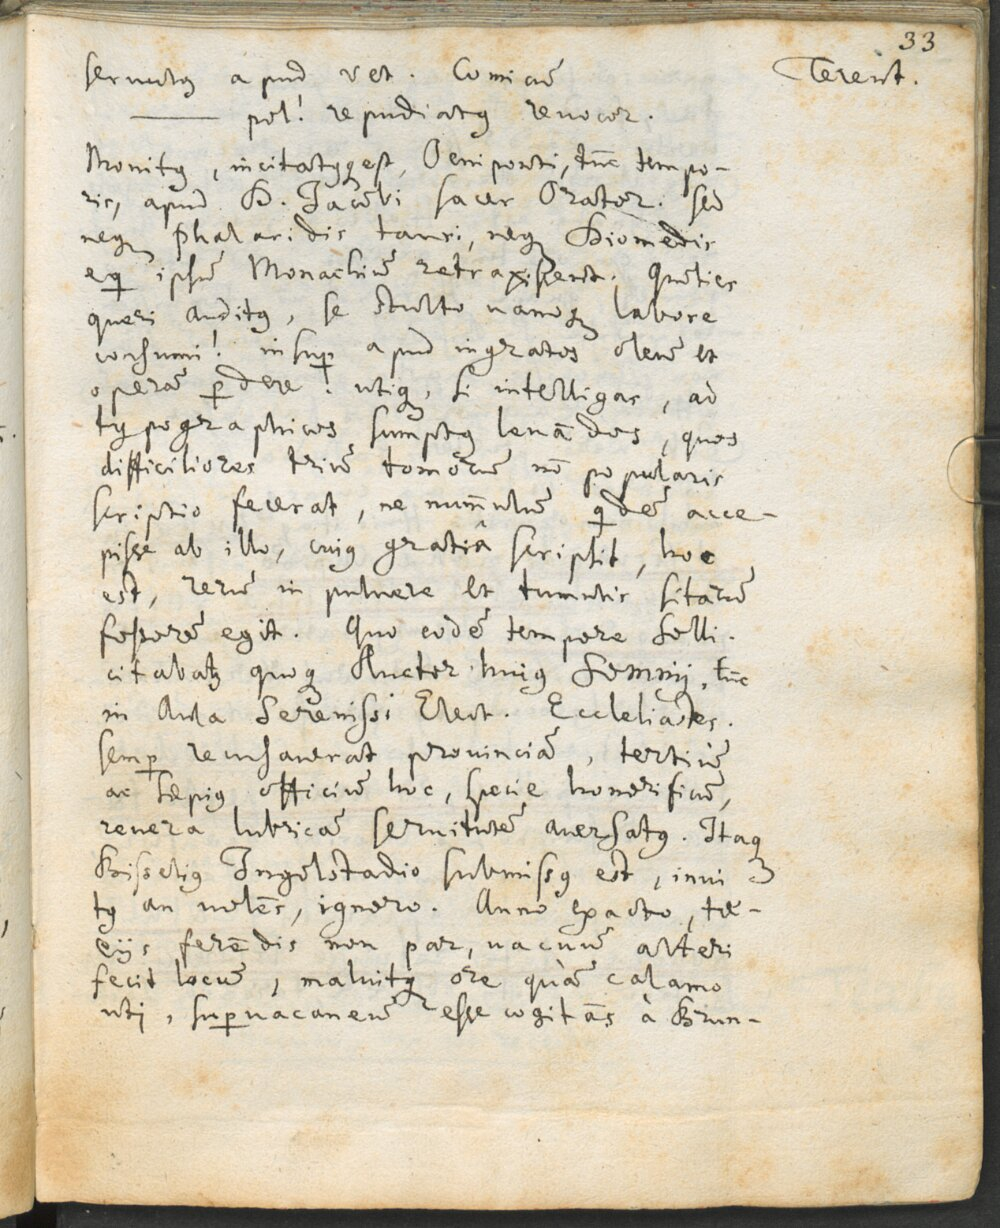 33
seruulus apud vet. Comicũ Terent.
—— pol! repudiatus reuocor.
Monitus, incitatusq3 est, Oeniponti, tũc tempo-
ris, apud D. Jacobi sacer Orator. Sed
neq3 Phalaridis tauri, neq3 Diomedis
equi ipsũ Monachiũ retraxissent. Quoties
queri auditus, se stulto uanoq3 labore
consumi! insuper apud ingratos oleũ et
operã perdere! utiq3, si intelligas, ad
typographicos sumptus leuãdos, quos
difficiliores triũ tomorũ nõ popularis
scriptio fecerat, ne num̃ulũ quidẽ acce-
pisse ab illo, cuius gratiâ scripsit, hoc
est, rerũ in puluere et tumulis sitarũ
fossorẽ egit. Quo eodẽ tempore solli-
citabatur quoq3 Auctor huius Somnij, tũc
in Aula Sereniss: Elect. Ecclesiastes.
semper recusauerat prouinciã, tertiũ
ac sæpius officiũ hoc, specie honorificũ,
reuera lubricã seruitutẽ auersatus. Itaq3
Bisselius Ingolstadio submissus est, inui
tus an uolẽs, ignoro. Anno exacto, tæ-
dijs ferẽdis non par, uacuũ alteri
fecit locũ, maluitq3 ore quàm calamo
uti, superuacaneũ esse cogitãs à Brun-